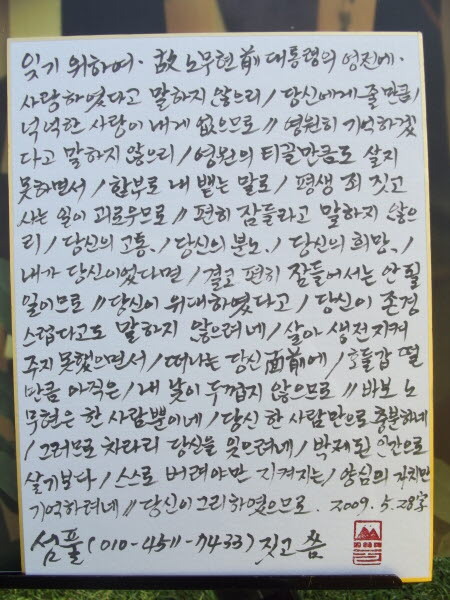 잊기 위하여. 故 노무현 前 대통령의 영전에.
사랑하였다고 말하지 않으리 / 당신에게 줄 만큼 /
넉넉한 사랑이 내게 없으므로 // 영원히 기억하겠
다고 말하지 않으리 / 영원의 티끌만큼도 살지
못하면서 / 함부로 내뱉는 말로 / 평생 죄 짓고
사는 일이 괴로우므로 // 편히 잠들라고 말하지 않으
리 / 당신의 고통, / 당신의 분노, / 당신의 희망, /
내가 당신이었다면 / 결코 편히 잠들어서는 안 될
일이므로 // 당신이 위대하였다고 / 당신이 존경
스럽다고도 말하지 않으려네 / 살아 생전 지켜
주지 못했으면서 / 떠나는 당신 面前에 / 호들갑 떨
만큼 아직은 / 내 낯이 두껍지 않으므로 // 바보 노
무현은 한 사람뿐이네 / 당신 한 사람만으로 충분하네
/ 그러므로 차라리 당신을 잊으려네 / 박제된 인간으로
살기보다 / 스스로 버려야만 지켜지는 / 양심의 가치만
기억하려네 // 당신이 그리하였으므로. 2009. 5. 28 字
섬풀 (010-4511-7433) 짓고 씀